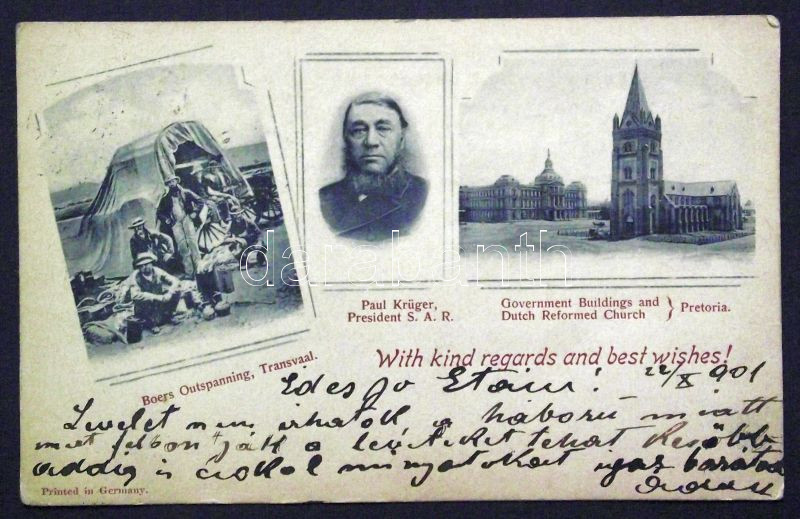 Paul Krüger,
President S. A. R.
Government Buildings and
Dutch Reformed Church } Pretoria.
Boers Outspanning, Transvaal.
With kind regards and best wishes!
Édes jó Etám! 22/X 901
Levelet nem írhatok a háború miatt
mert felbontják a leveleket tehát később
addig is csókol mindnyájatokat igaz barátod
Printed in Germany.